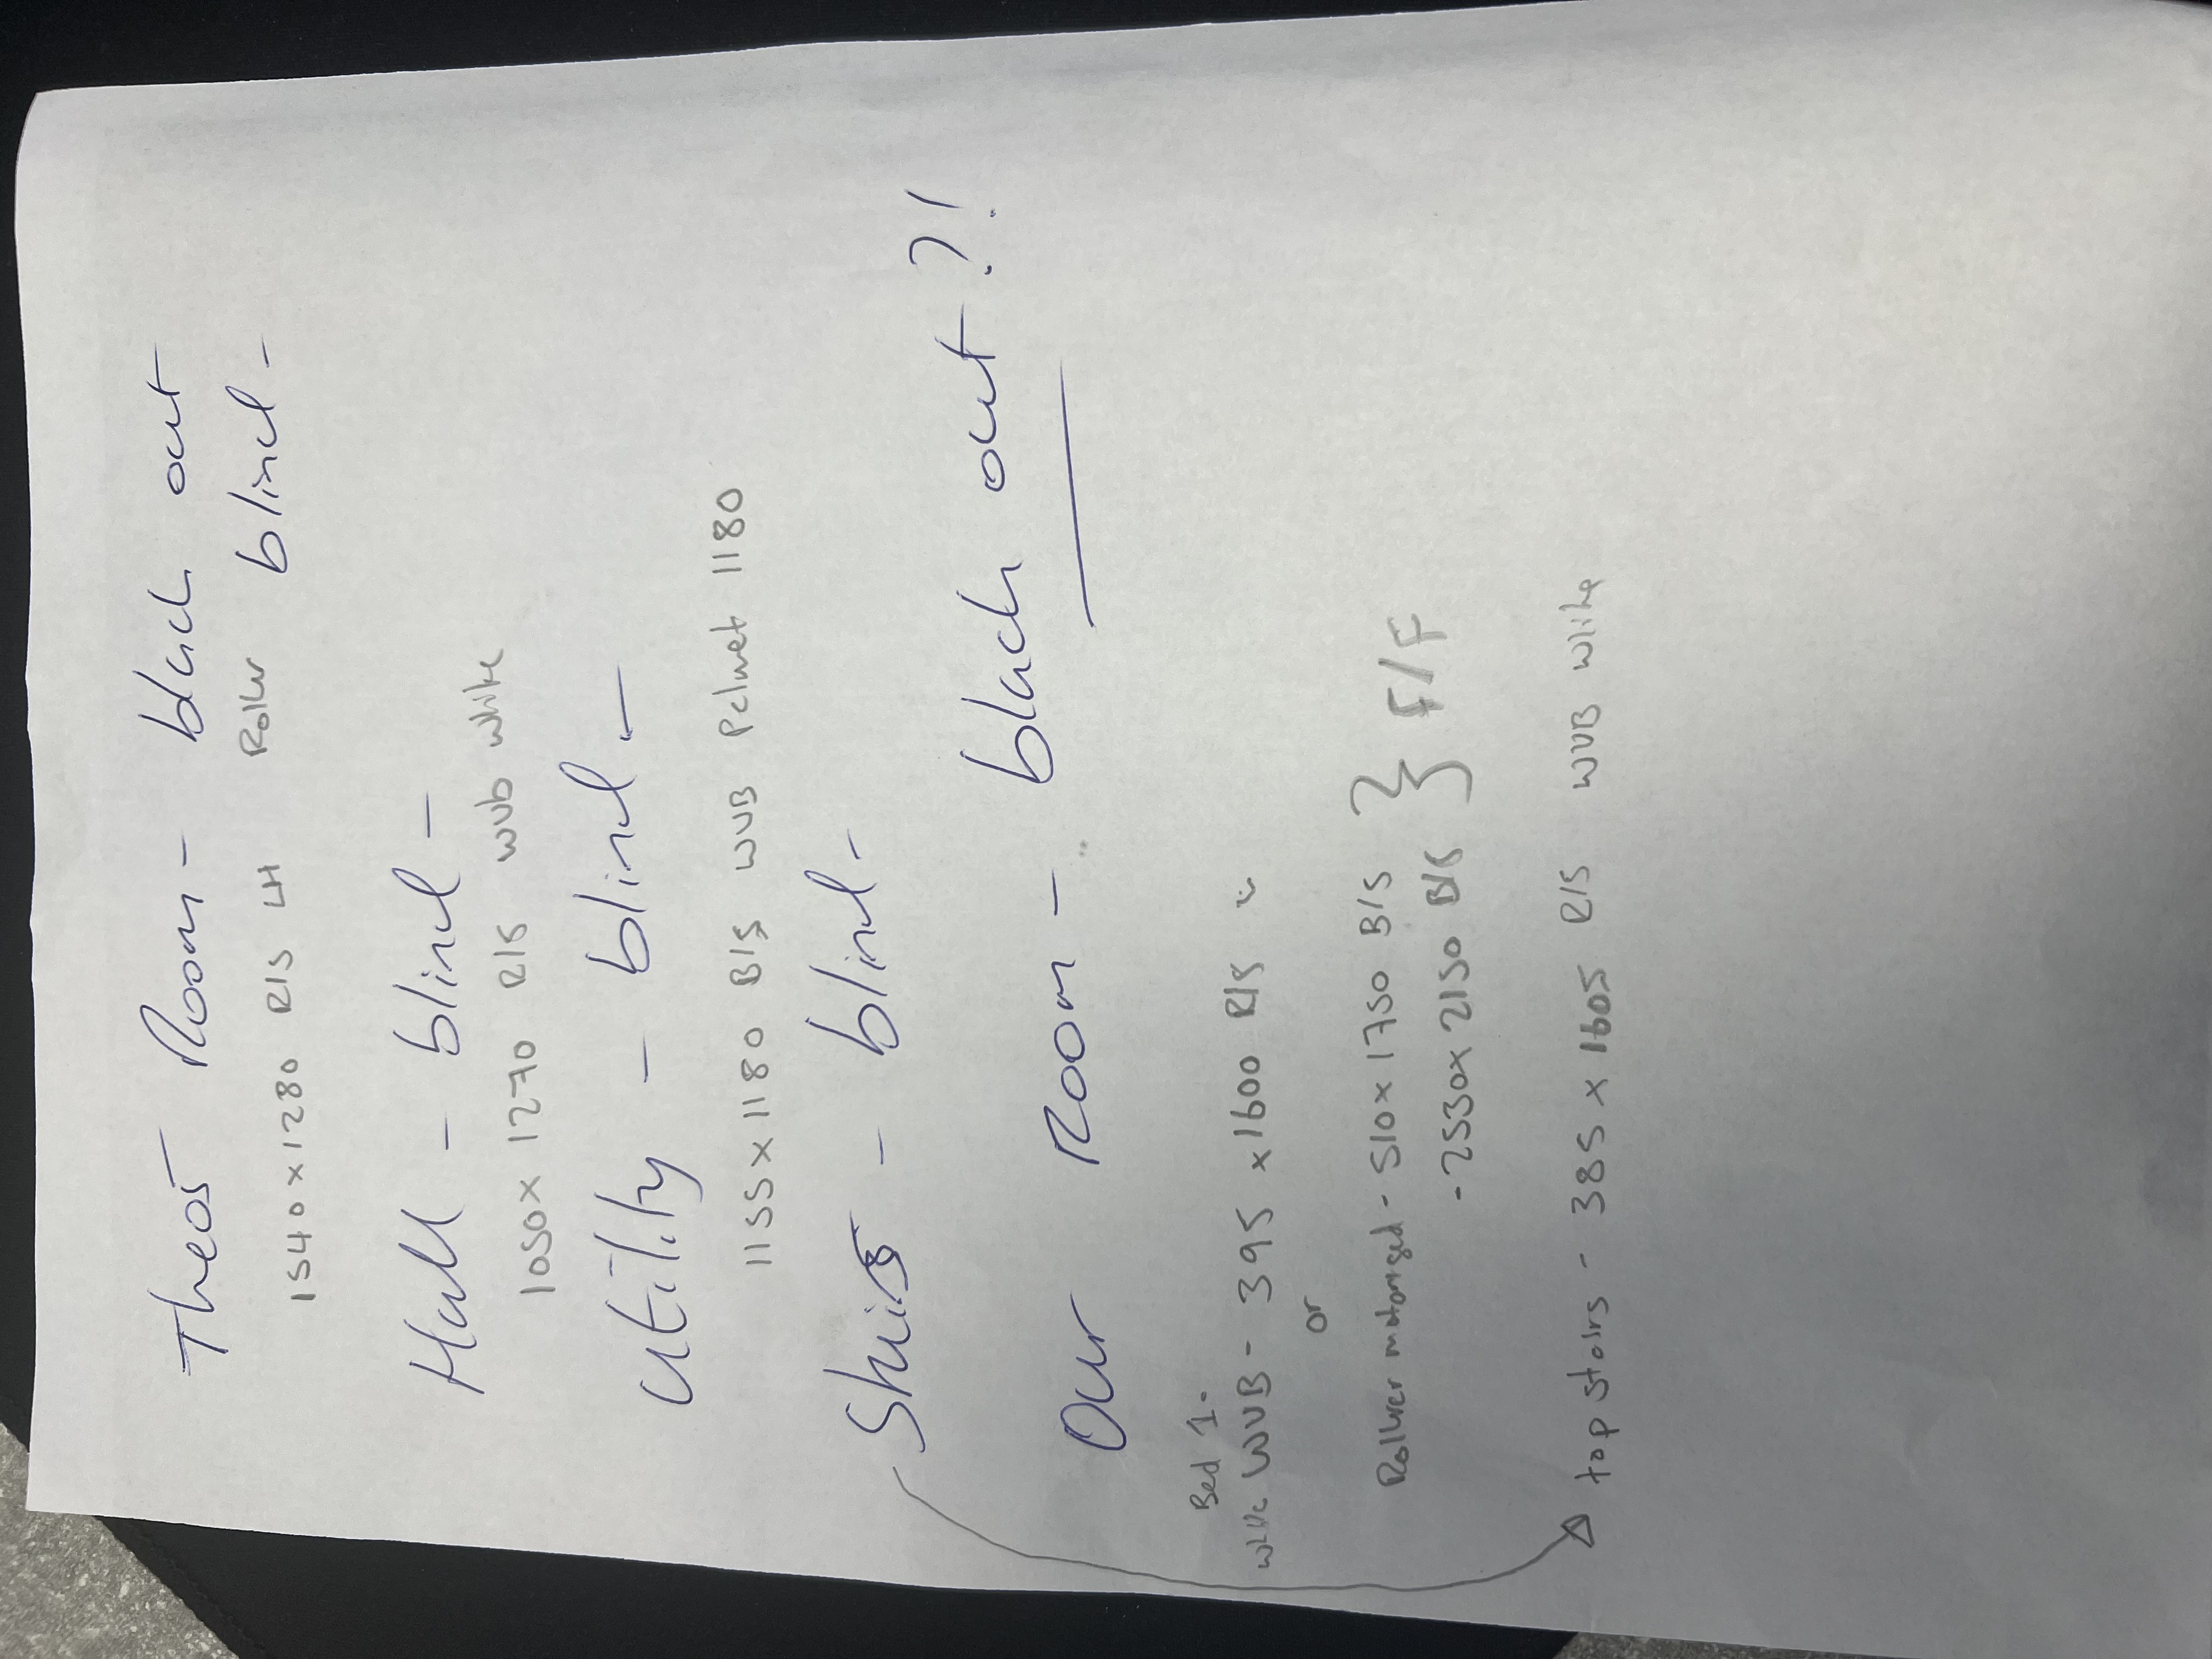 Theos Room - black out
Roller blind -
1540 x 1280 R/S LH
Hall - blind -
1050 x 1270 R/S WVB White
Utility - blind -
1155 x 1180 B/S WVB Pelmet 1180
Stairs - blind -
Our Room - black out?!
Bed 1.
White WVB - 395 x 1600 R/S
or
Roller motorised - 510 x 1750 B/S } F/F
- 2530 x 2150 B/S
top stairs - 385 x 1605 R/S WVB White